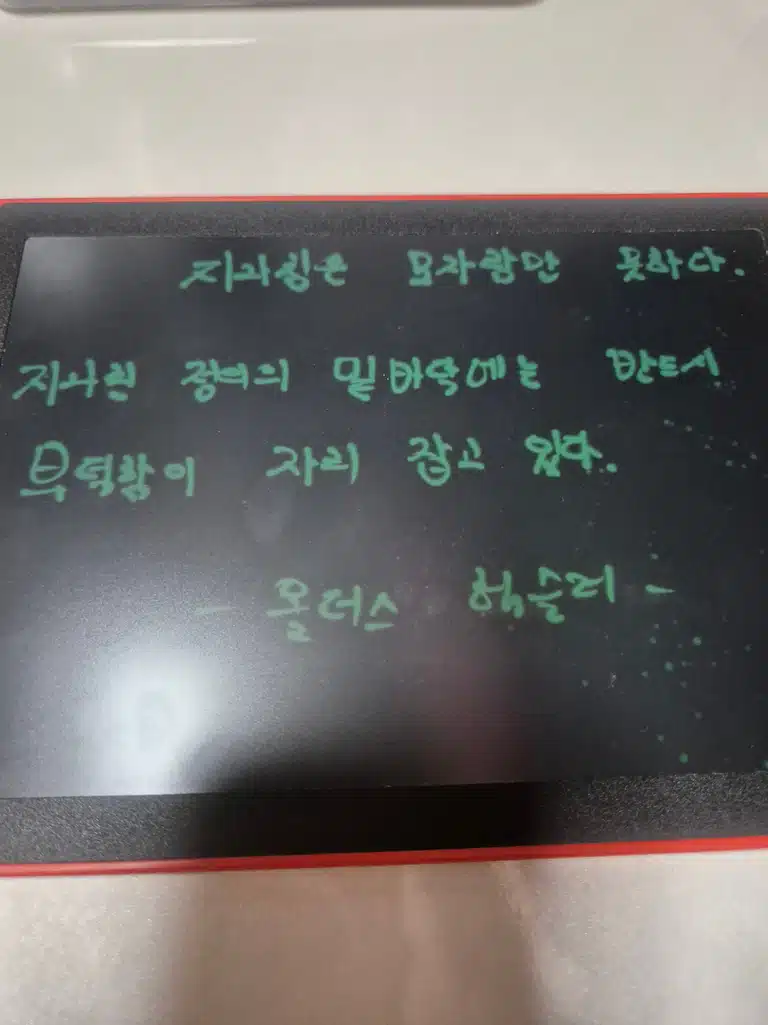 지나침은 모자람만 못하다.
지나친 정의의 밑바닥에는 반드시
부덕함이 자리 잡고 있다.
- 올더스 헉슬리 -